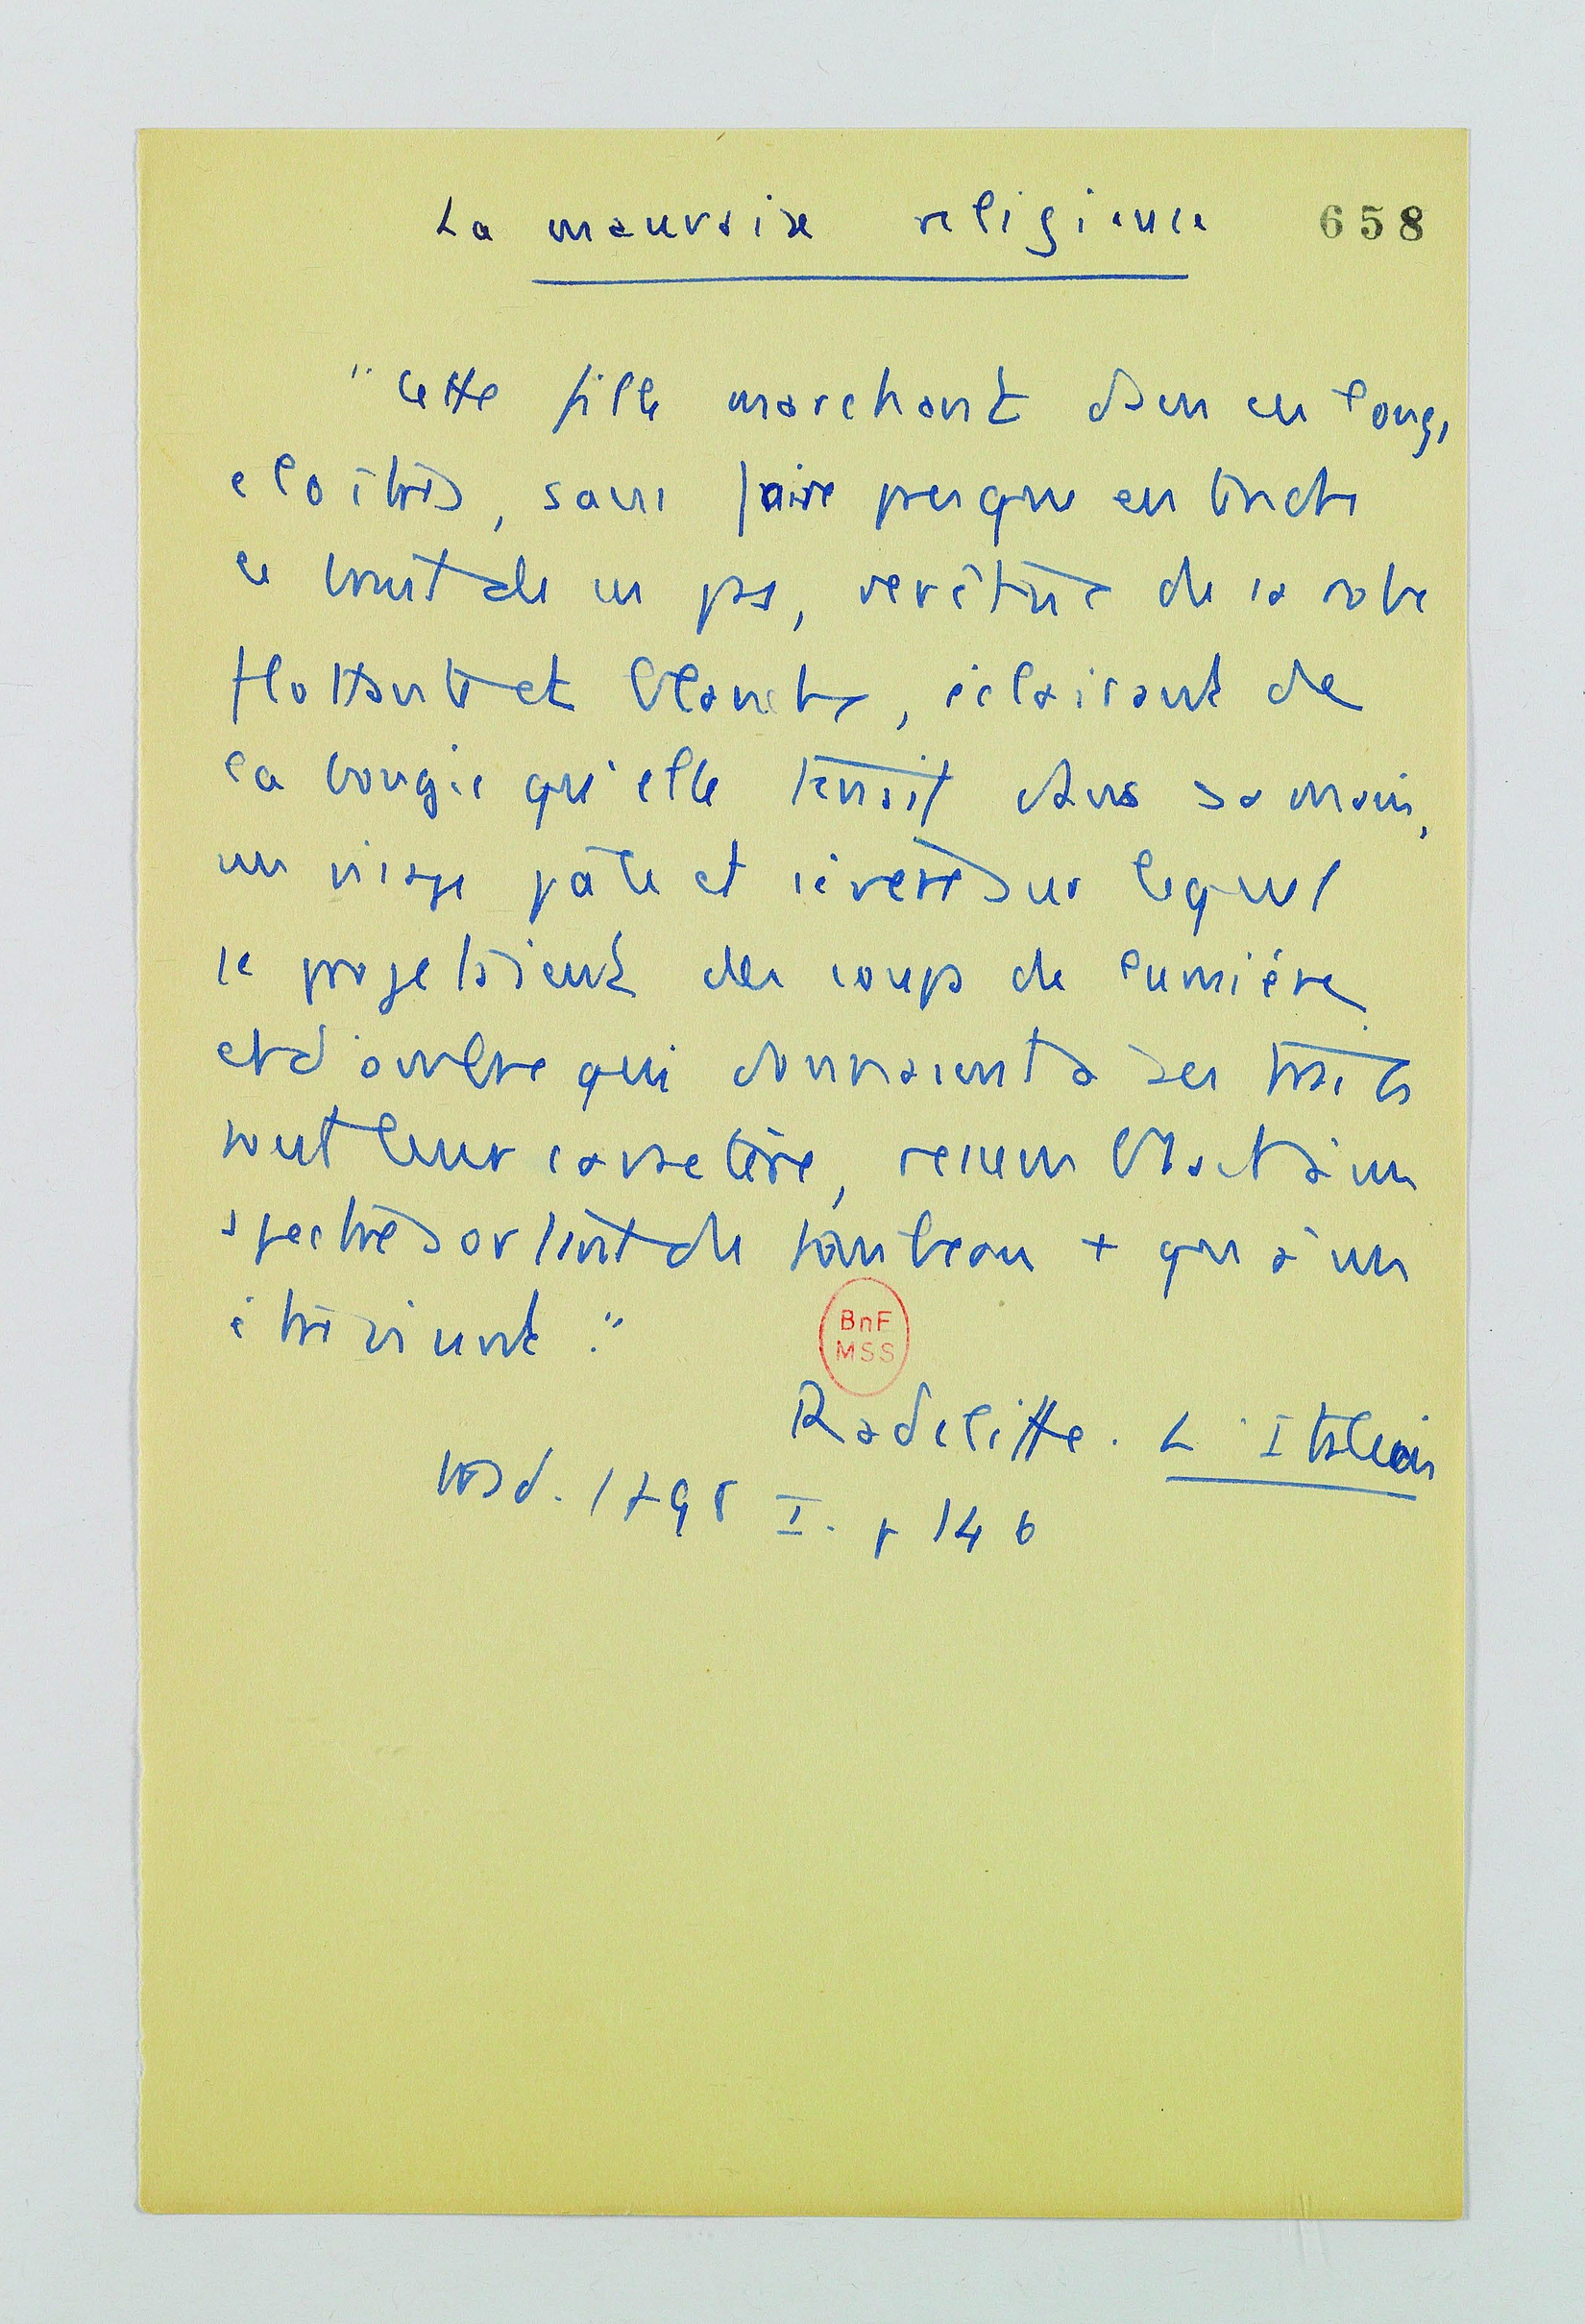 La mauvaise religieuse
658
"Cette fille marchant dans ces longs
cloîtres, sans faire presque entendre
le bruit de ses pas, revêtue de sa robe
flottante et blanche, éclairant de
la bougie qu'elle tenait dans sa main,
un visage pâle et sévère sur lequel
se projetaient des coups de lumière
et d'ombre qui donnaient à ses traits
tout leur caractère, ressemblait à un
spectre sortant du tombeau + qu'à un
être vivant."
BnF
MSS
Radcliffe. L'Italien
trad. 1798 I. p 146